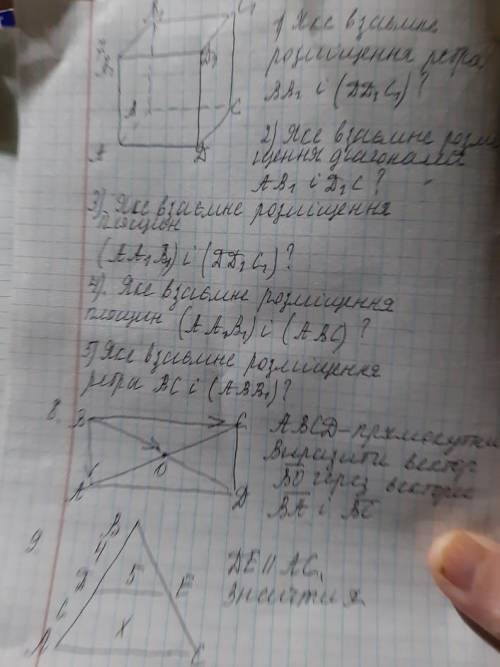 B₁ C₁
A₁ D₁
B C
A D
1) Яке взаємне
розміщення ребра
BB₁ і (DD₁C₁)?
2) Яке взаємне розмі
щення діагоналей
AB₁ і D₁C?
3) Яке взаємне розміщення
площин
(AA₁B₁) і (DD₁C₁)?
4) Яке взаємне розміщення
площин (AA₁B₁) і (ABC)?
5) Яке взаємне розміщення
ребра BC і (ABB₁)?
8. B C
A O D
ABCD - прямокутник
Виразити вектор
BO через вектори
BA і BC
9. B
4
D 5 E
C
A X C
DE || AC,
Знайти x